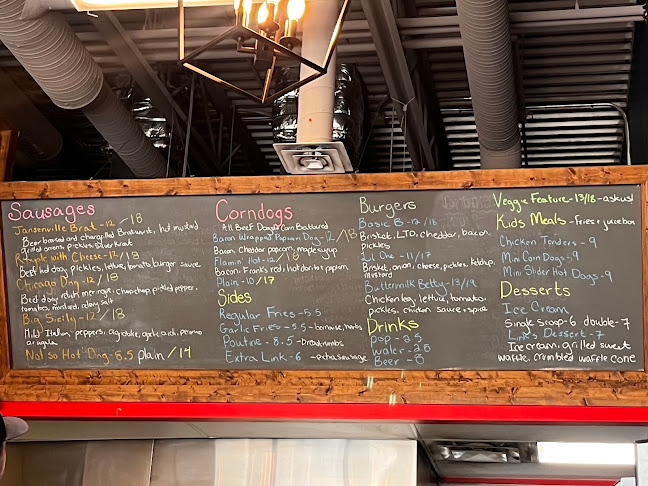 Sausages
Jansenville Brat - 12 / 18
Beer based and chargrilled Bratwurst, hot mustard
grilled onions, pickles, silverkraut
with Cheese - 12 / 18
Beef hot dog, pickles, lettuce, tomato, burger sauce
Chicago Dog - 12 / 18
Beef dog, relish, pickled pepper,
tomatoes, mustard, celery salt
Big Sicily - 12 / 18
Mild Italian, peppers, agrodolce, garlic aioli, pecorino
arugula
Not so Hot Dog - 8.5 plain / 14
Corndogs
All Beef Dogs & Corn Battered
Bacon Wrapped Popcorn Dog - 12 / 18
Bacon, Cheddar popcorn, maple syrup
Flamin Hot - 12 / 18
Bacon, Franks red hot, doritos, popcorn
Plain - 10 / 17
Sides
Regular Fries - 5.5
Garlic Fries - 5.5 - bearnaise, herbs
Poutine - 8.5 - breadcrumbs
Extra Link - 6 - extra sausage
Burgers
Basic B - 12 / 18
Brisket, LTO, cheddar, bacon,
pickles
One - 11 / 17
Brisket, onion, cheese, pickles, ketchup,
mustard
Buttermilk Betty - 13 / 19
Chicken leg, lettuce, tomato,
pickles, chicken sauce + spice
Drinks
pop - 2.5
water - 2.5
Beer - 8
Veggie Feature - 13/18 - ask us!
Kids Meals - fries + juice box
Chicken Tenders - 9
Mini Corn Dogs - 9
Mini Slider Hot Dogs - 9
Desserts
Ice Cream
Single scoop - 6 double - 7
Link's Dessert - 7
Ice cream, grilled sweet
waffle, crumbled waffle cone